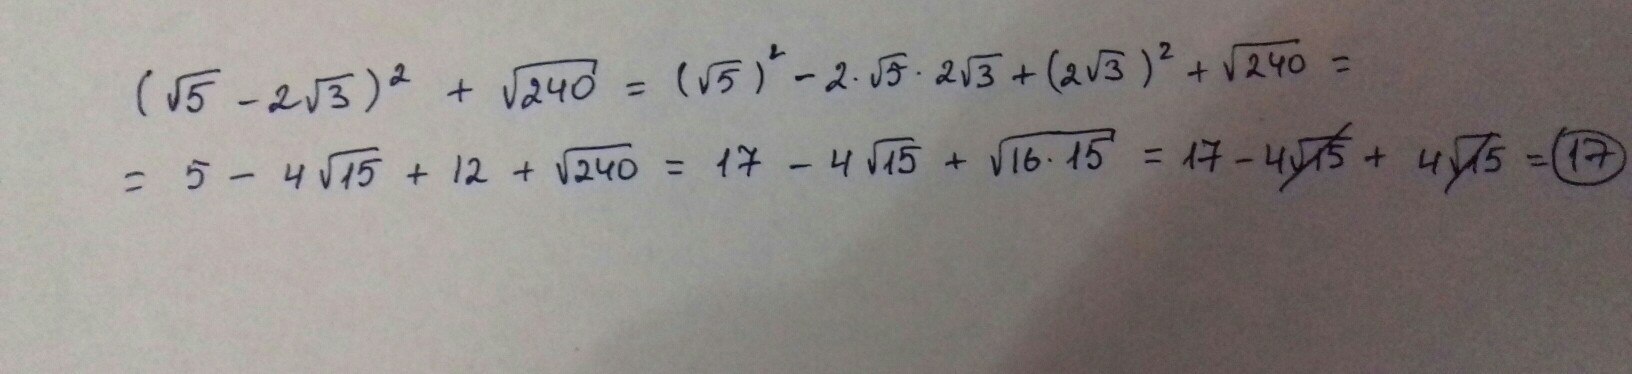 (√5 - 2√3)² + √240 = (√5)² - 2·√5·2√3 + (2√3)² + √240 =
= 5 - 4√15 + 12 + √240 = 17 - 4√15 + √16·15 = 17 - 4√15 + 4√15 = 17